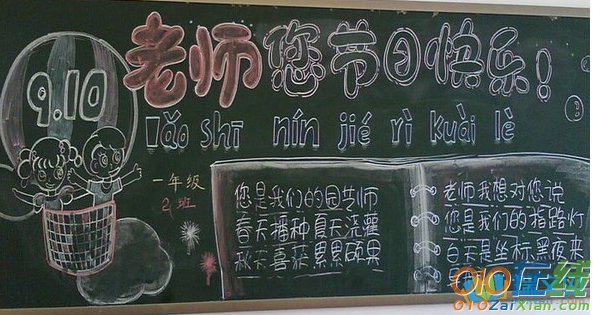 9.10
老师您节日快乐！
lǎo shī nín jié rì kuài lè
一年级
2班
您是我们的园艺师
春天播种夏天浇灌
秋天喜获累累硕果
老师我想对您说
您是我们的指路灯
白天是坐标黑夜来
010在线
010ZaiXian.com